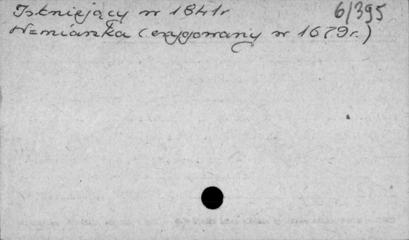 Istniejący w 1841r 6/395
Wzmianka (erygowany w 1679r.)